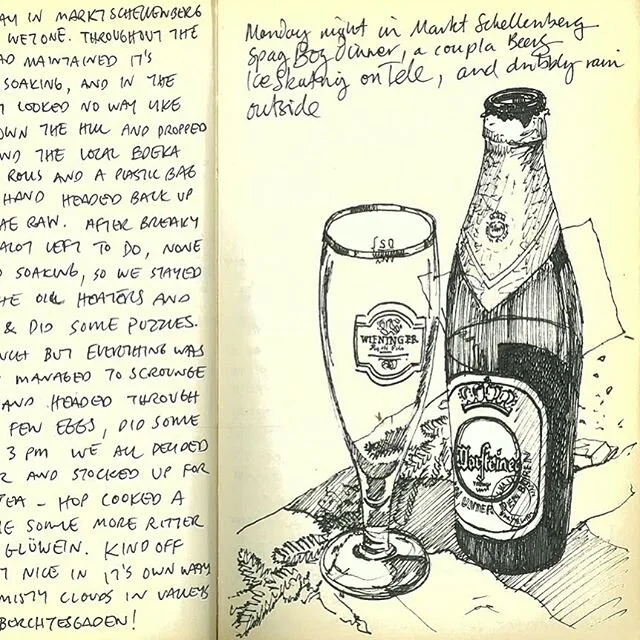 AY IN MARKTSCHELLENBERG
WET ONE. THROUGHOUT THE
AD MAINTAINED IT'S
SOAKING, AND IN THE
T LOOKED NO WAY LIKE
OWN THE HILL AND DROPPED
ND THE LOCAL EDEKA
ROLLS AND A PLASTIC BAG
HAND HEADED BACK UP
HE RAW. AFTER BREAKY
ALOT LEFT TO DO, NONE
SOAKING, SO WE STAYED
HE OIL HEATERS AND
& DID SOME PUZZLES.
NCH BUT EVERYTHING WAS
MANAGED TO SCROUNGE
AND HEADED THROUGH
FEW EGGS, DID SOME
3 PM WE ALL DECIDED
R AND STOCKED UP FOR
TEA – HOP COOKED A
E SOME MORE RITTER
GLÜWEIN. KIND OFF
T NICE IN IT'S OWN WAY
MISTY CLOUDS IN VALLEYS
BERCHTESGADEN!
Monday night in Markt Schellenberg
Spag Bog Dinner, a coupla Beers
Ice Skating on Tele, and dribbly rain
outside
0,2l
WIENINGER
Warsteiner